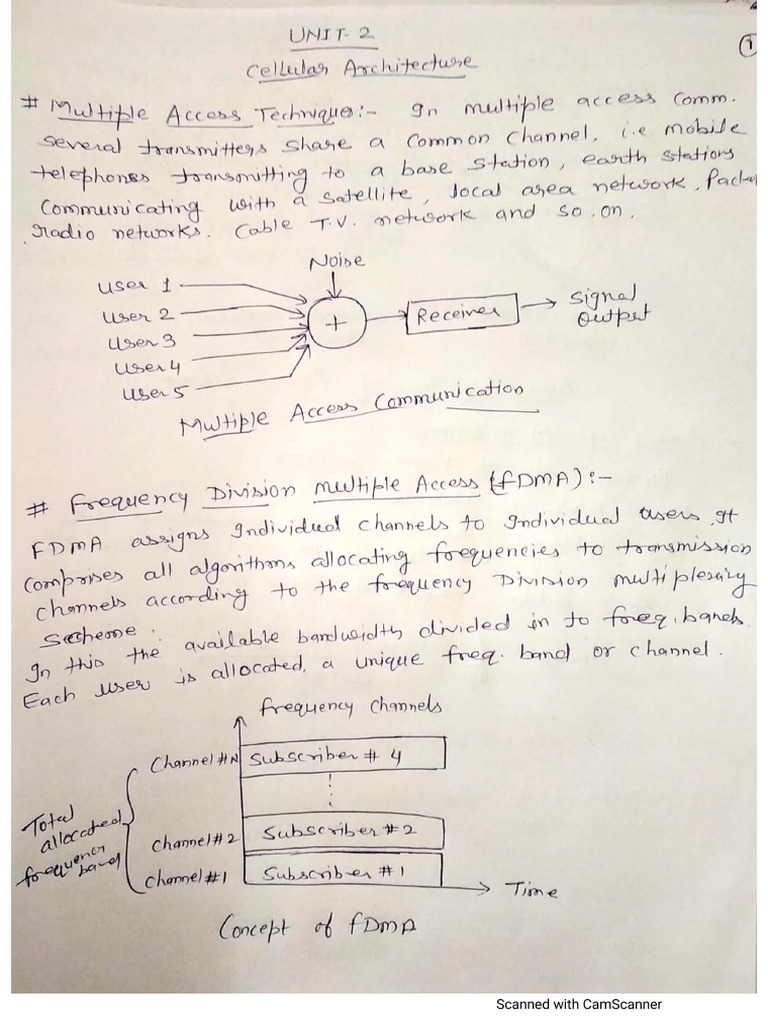 UNIT-2
①
Cellular Architecture
# Multiple Access Technique:- In multiple access comm.
several transmitters share a common channel, i.e mobile
telephones transmitting to a base station, earth stations
communicating with a satellite, local area network, Packet
radio networks. Cable T.V. network and so.on.
Noise
User 1
User 2
User 3
User 4
User 5
+
Receiver
Signal
output
Multiple Access Communication
# Frequency Division Multiple Access (FDMA):-
FDMA assigns Individual channels to Individual users. It
comprises all algorithms allocating frequencies to transmission
channels according to the frequency Division multiplexing
scheme.
In this the available bandwidth divided in to freq. bands.
Each user is allocated, a unique freq. band or channel.
Frequency Channels
Channel #N
Subscriber # 4
Total
allocated
frequency
band
Channel #2
Subscriber #2
Channel #1
Subscriber #1
Time
Concept of FDMA
Scanned with CamScanner